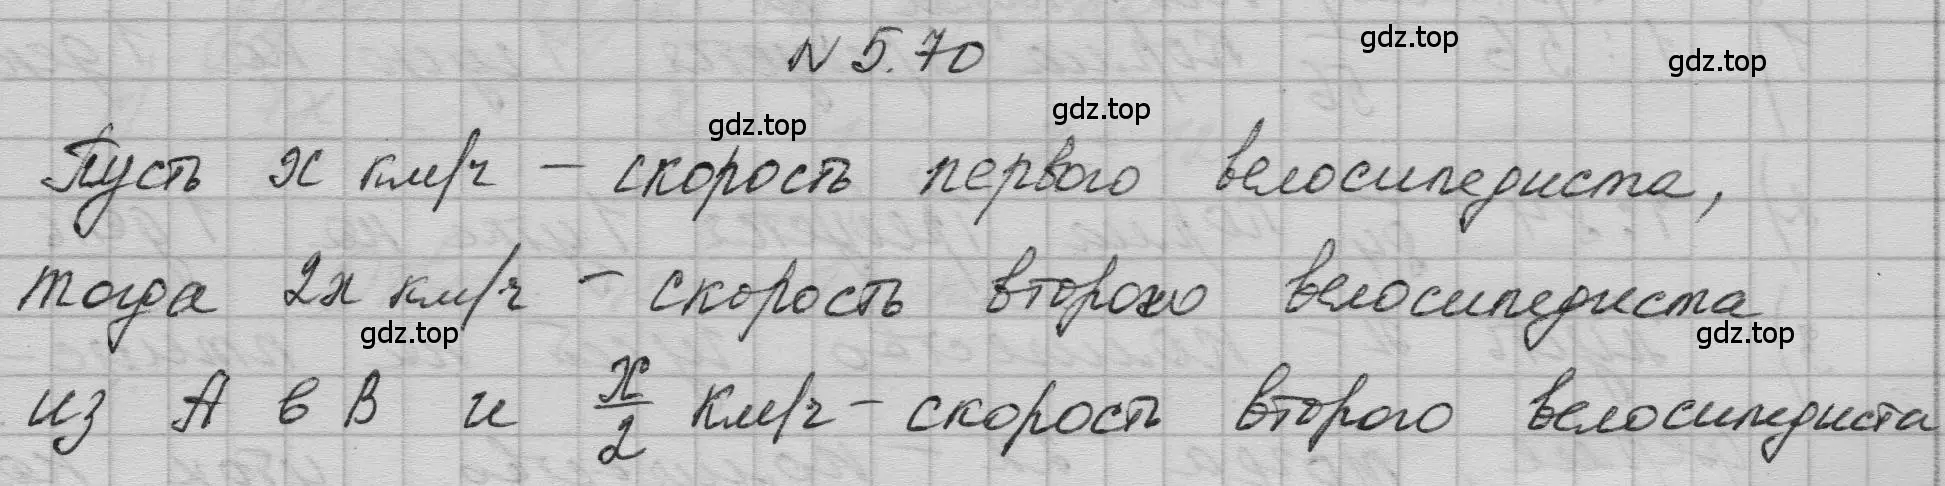 N 5.70
gdz.top
gdz.top
gdz.top
gdz.top
Пусть x км/ч – скорость первого велосипедиста,
тогда 2x км/ч – скорость второго велосипедиста
gdz.top
gdz.top
из A в B и x/2 км/ч – скорость второго велосипедиста